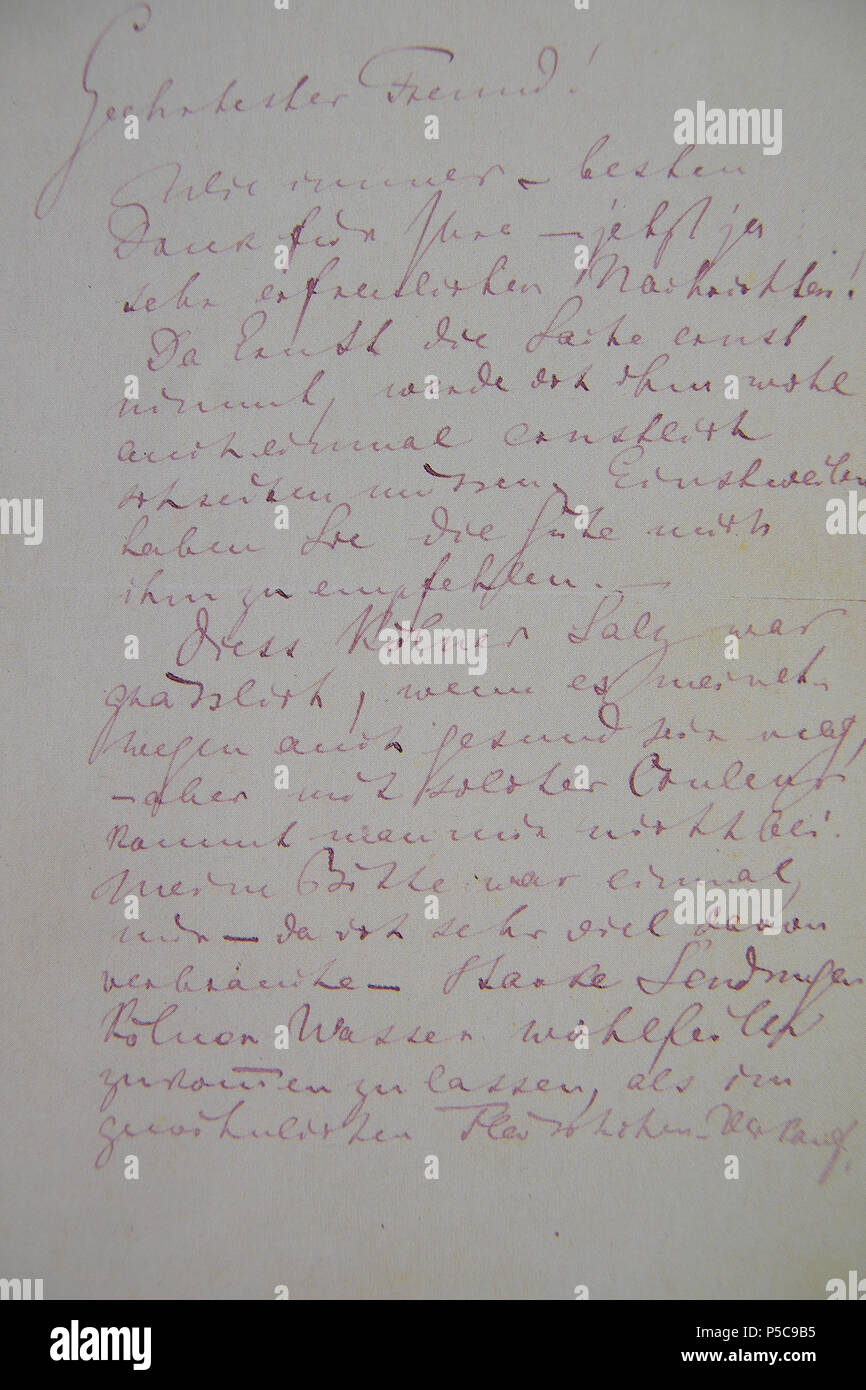 Geehrtester Freund!
Wie immer – besten
Dank für Ihre – jetzt ja
sehr erfreulichen Nachrichten!
Da Ernst die Sache ernst
nimmt, werde ich ihm wohl
auch einmal ernstlich
schreiben müssen. Einstweilen
haben Sie die Güte mich
ihm zu empfehlen. –
Diess Kölner Salz war
grässlich, wenn es meinet-
wegen auch gesund sein mag,
– aber mit solcher Couleur
kommt man mir nicht bei.
Meine Bitte war einmal,
mir – da ich sehr viel davon
verbrauche – starke Sendungen
Kölner Wasser wohlfeiler
zukommen zu lassen, als im
gewöhnlichen Fläschchen-Verkauf.
alamy
Image ID: P5C9B5
www.alamy.com